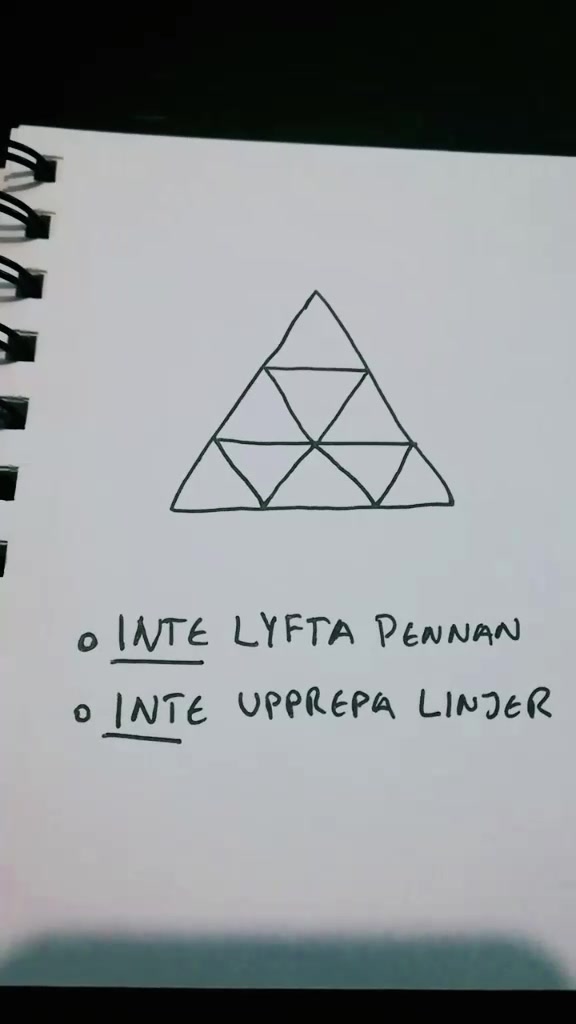 INTE LYFTA PENNAN
INTE UPPREPA LINJER